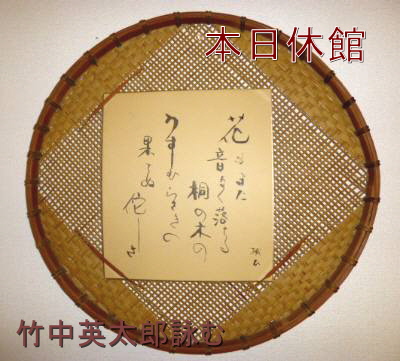 本日休館
花もまた
音なく落ちる
桐の木の
うすむらさきの
果てぬ佗しさ
竹中英太郎詠む